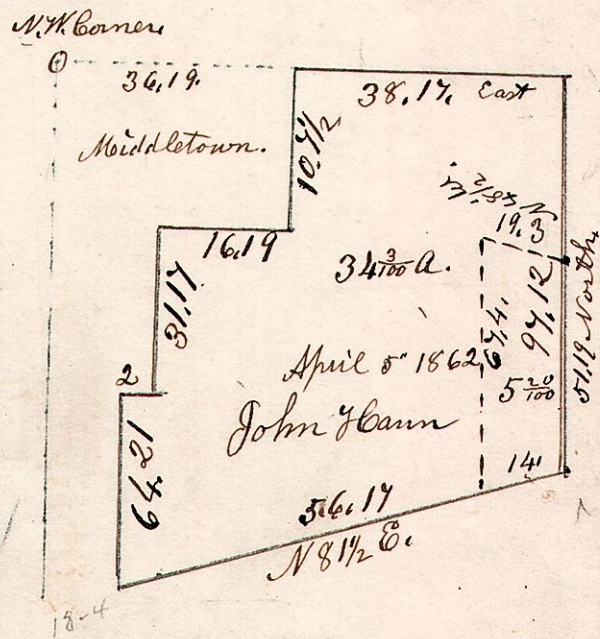 N.W. Corner.
36,19.
38,17, East
Middletown.
10,7½
N 48½ W.
19,3
16,19
34 3/100 A.
31,17
67,4.
97,12
51,19 North.
April 5" 1862
5 20/100
2
John Hann
64,21
14
56,17
N 81½ E.
18-4